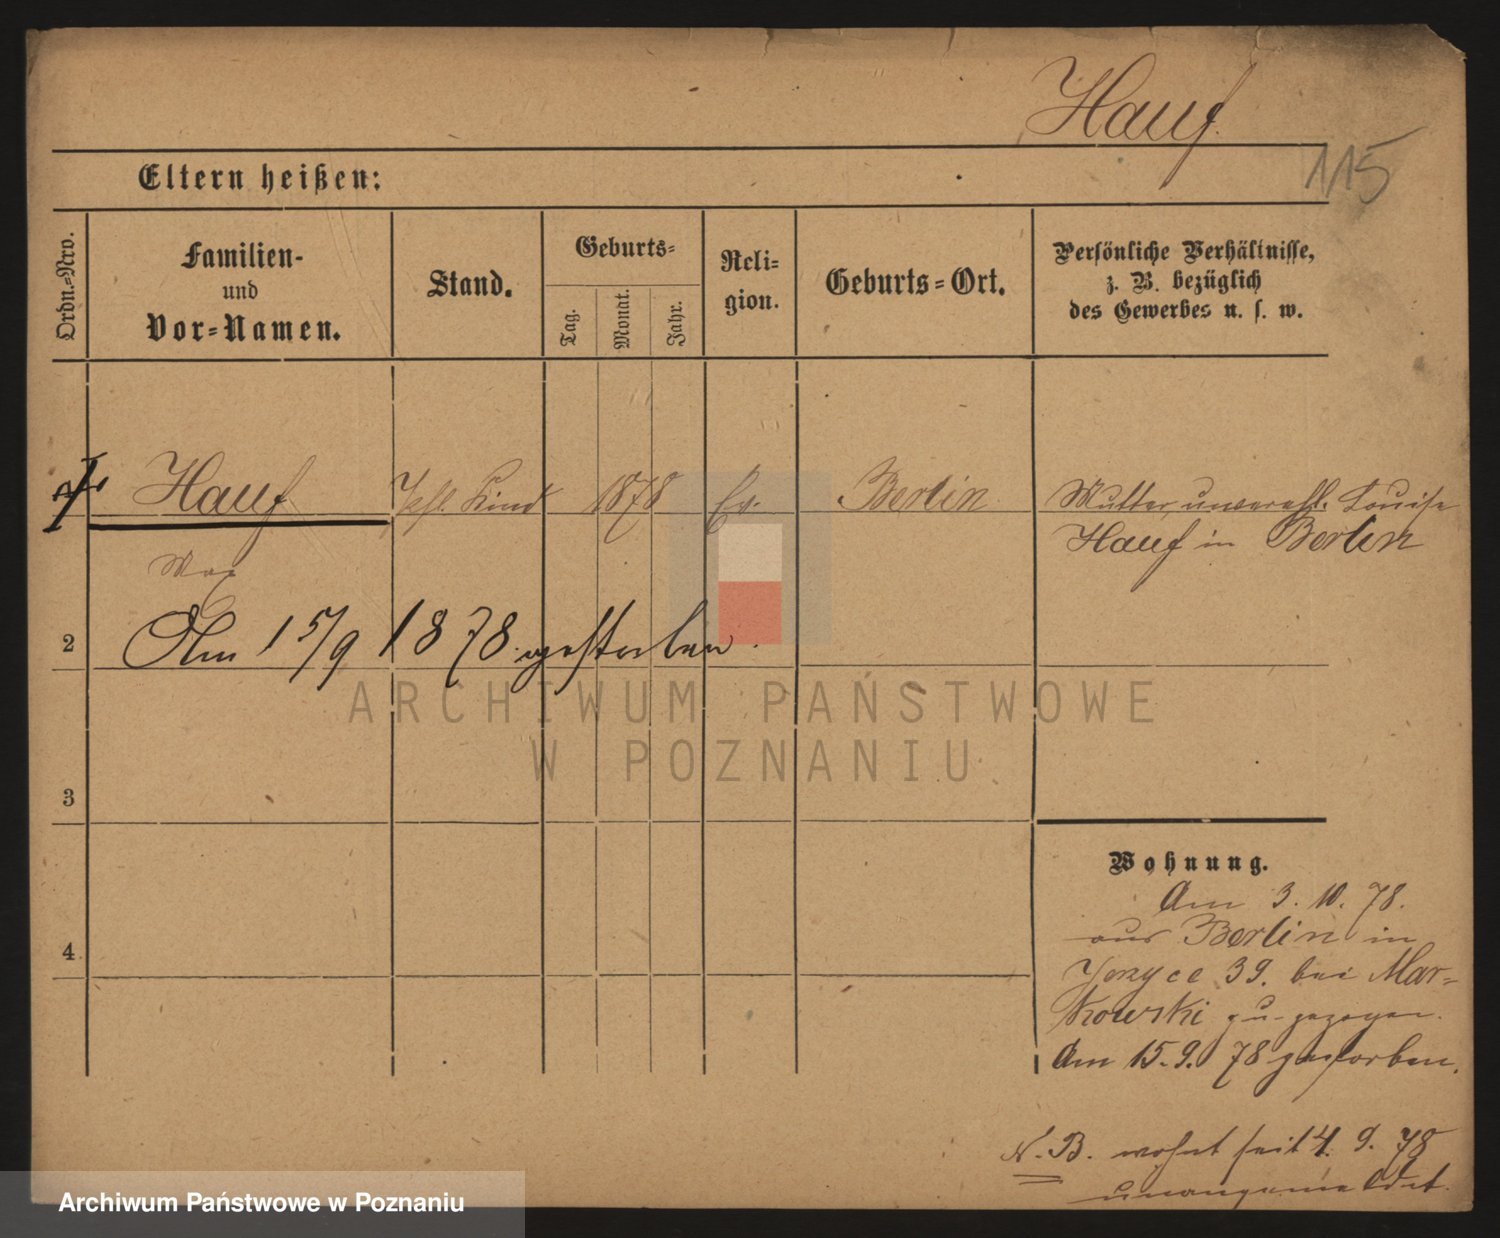 Hauf
115
Eltern heißen:
Ordn.-Nro.
Familien-
und
Vor-Namen.
Stand.
Geburts-
Tag.
Monat.
Jahr.
Reli-
gion.
Geburts-Ort.
Persönliche Verhältnisse,
z. B. bezüglich
des Gewerbes u. s. w.
Hauf
Kind
1878
Ev.
Berlin
Mutter, unverehl. Louise
Hauf in Berlin
Max
2
Am 15/9 1878 gestorben.
ARCHIWUM PAŃSTWOWE
W POZNANIU
3
Wohnung.
Am 3. 10. 78.
aus Berlin in
Jerzyce 39. bei Mar-
kowski zu-gezogen.
4
Am 15. 9. 78 gestorben.
N. B. wohnt seit 4. 9. 78
unangemeldet.
Archiwum Państwowe w Poznaniu